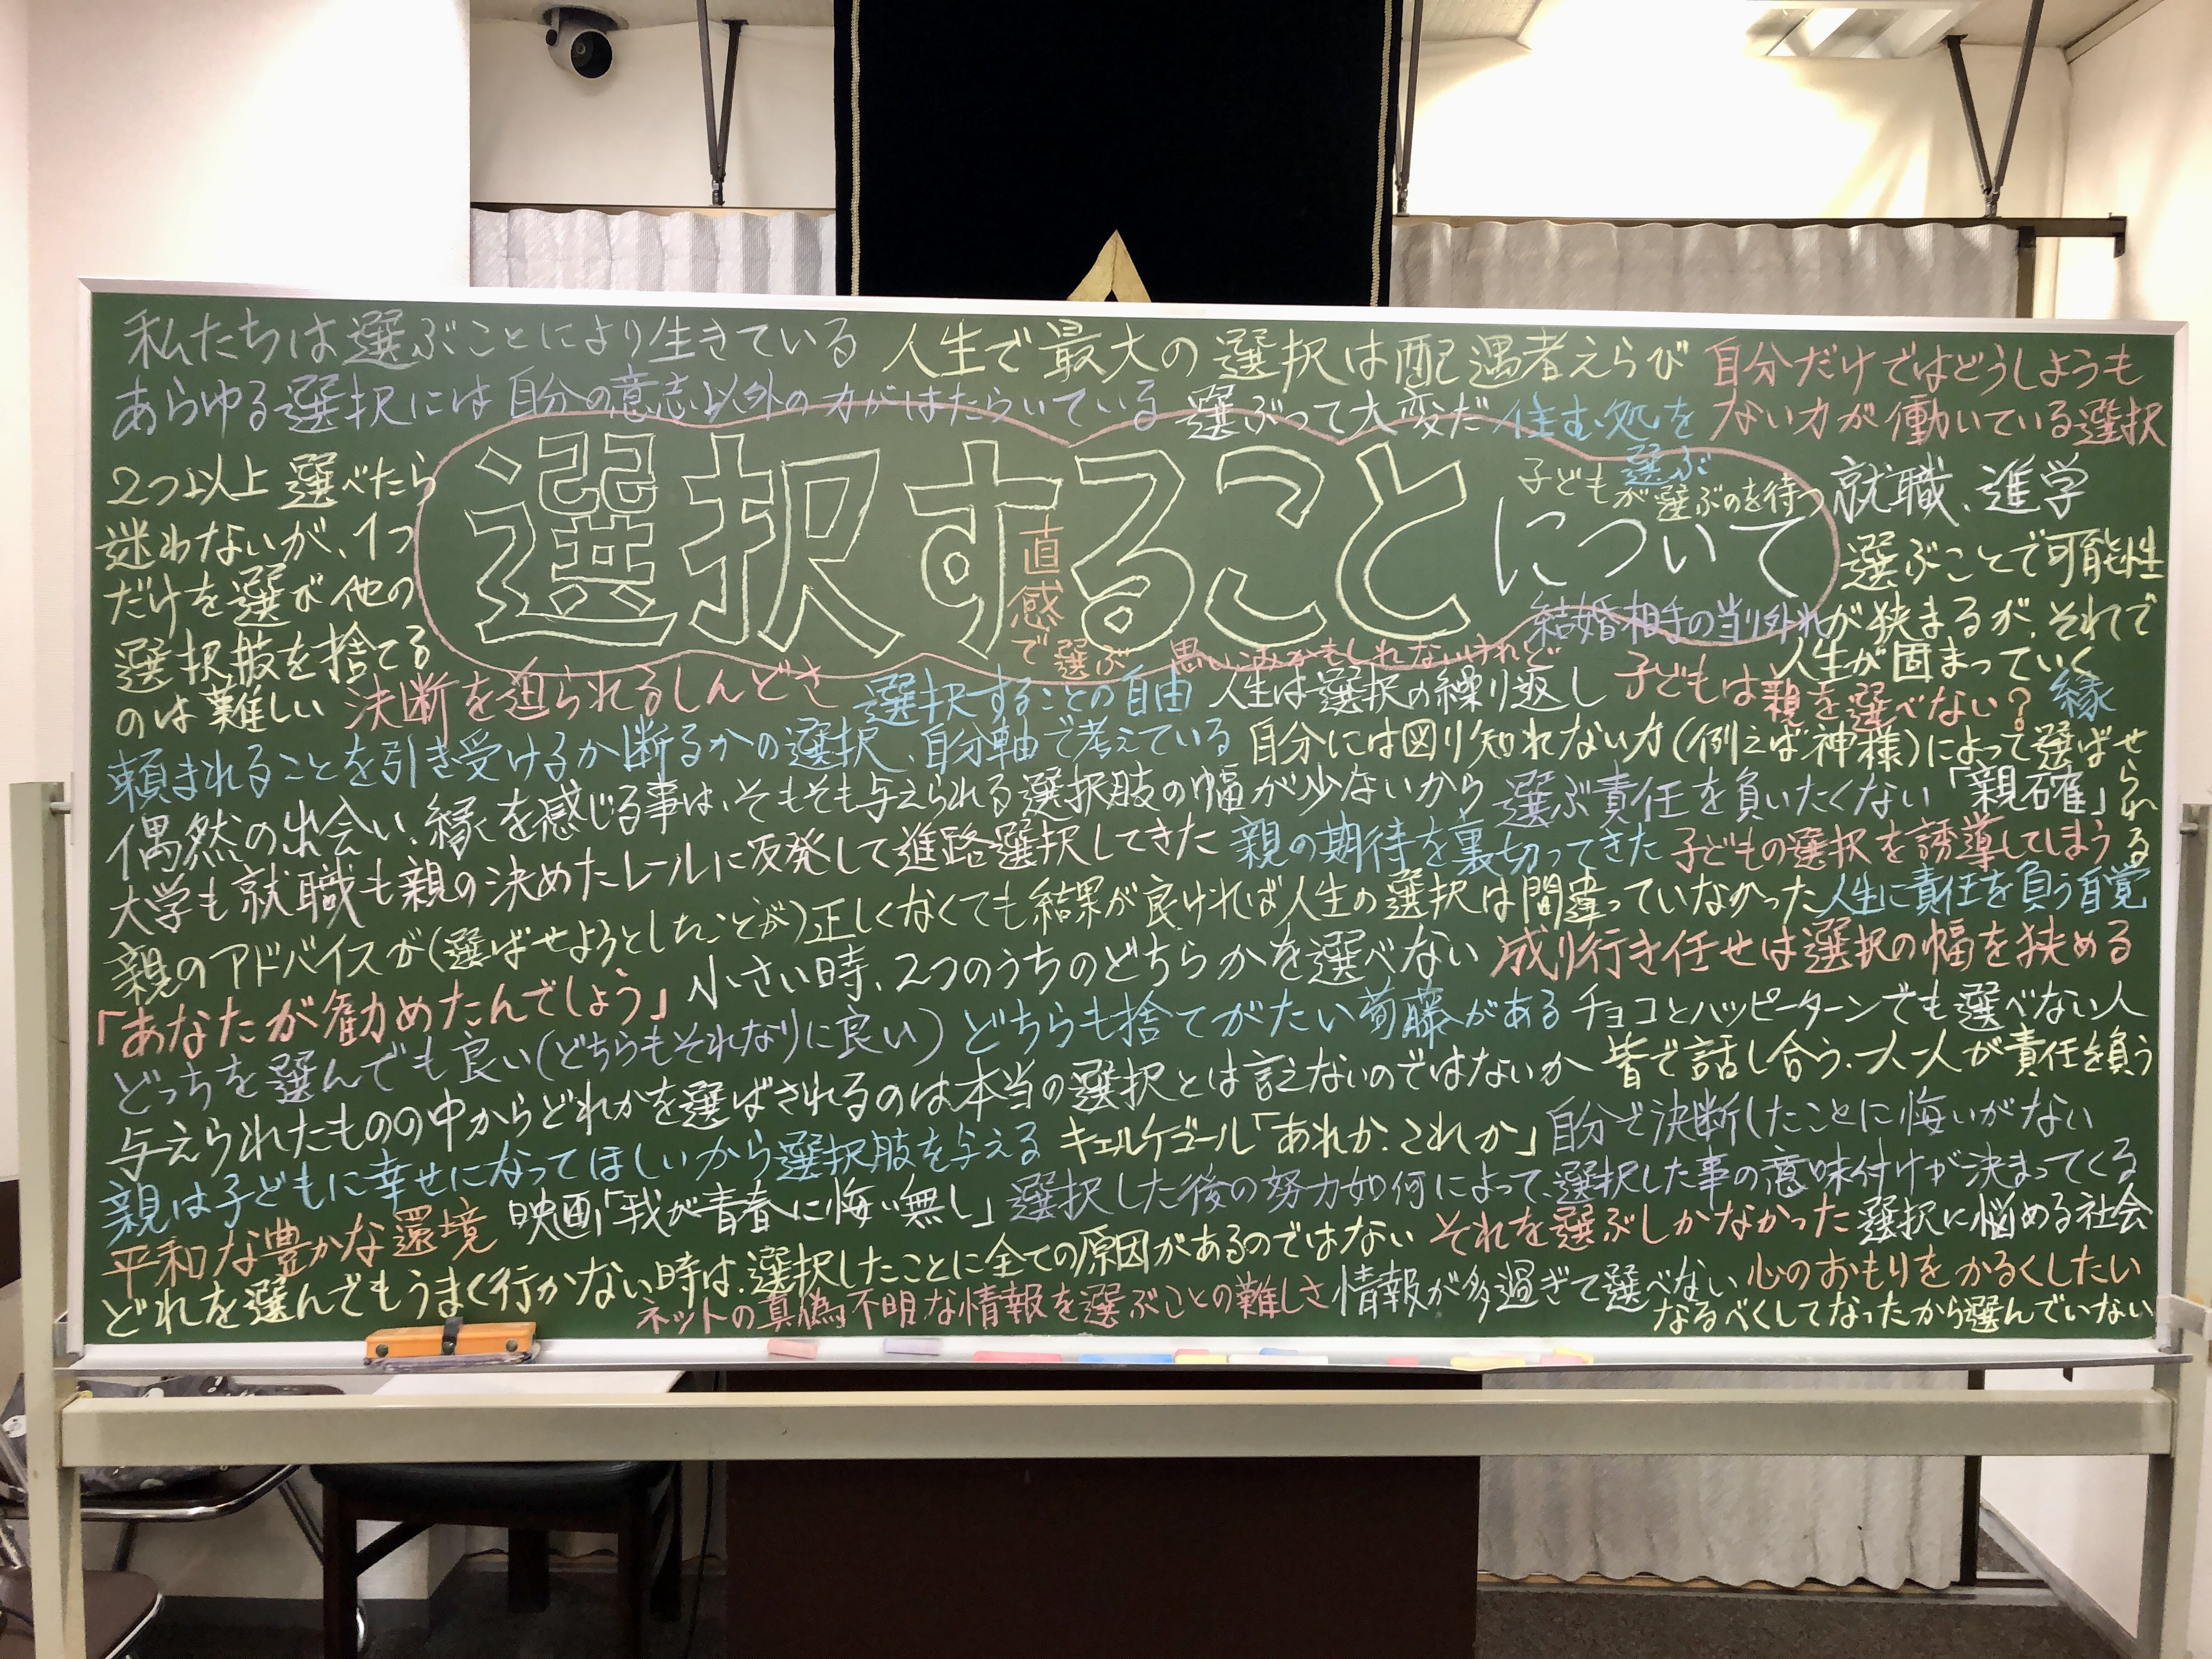 私たちは選ぶことにより生きている 人生で最大の選択は配偶者えらび 自分だけではどうしようも
ない力が働いている選択
あらゆる選択には自分の意志以外の力がはたらいている 選ぶって大変だ 住む処を
選ぶ
選択することについて
子どもが選ぶのを待つ
就職、進学
直感で選ぶ
2つ以上選べたら
迷わないが、1つ
だけを選び他の
選択肢を捨てる
のは難しい
選ぶことで可能性
が狭まるが、それで
人生が固まっていく
結婚相手の当り外れ
思いこみかもしれないけれど
決断を迫られるしんどさ 選択することの自由 人生は選択の繰り返し 子どもは親を選べない? 縁
頼まれることを引き受けるか断るかの選択、自分軸で考えている 自分には図り知れない力(例えば神様)によって選ばせられる
偶然の出会い、縁を感じる事は、そもそも与えられる選択肢の幅が少ないから 選ぶ責任を負いたくない 「親確」
大学も就職も親の決めたレールに反発して進路選択してきた 親の期待を裏切ってきた 子どもの選択を誘導してしまう
親のアドバイスが(選ばせようとしたことが)正しくなくても結果が良ければ人生の選択は間違っていなかった 人生に責任を負う自覚
「あなたが勧めたんでしょう」 小さい時、2つのうちのどちらかを選べない 成り行き任せは選択の幅を狭める
どっちを選んでも良い(どちらもそれなりに良い) どちらも捨てがたい葡藤がある チョコとハッピーターンでも選べない人
与えられたものの中からどれかを選ばされるのは本当の選択とは言えないのではないか 皆で話し合う、一人一人が責任を負う
親は子どもに幸せになってほしいから選択肢を与える キェルケゴール「あれか、これか」 自分で決断したことに悔いがない
平和な豊かな環境 映画「我が青春に悔い無し」 選択した後の努力如何によって、選択した事の意味付けが決まってくる
どれを選んでもうまく行かない時は、選択したことに全ての原因があるのではない それを選ぶしかなかった 選択に悩める社会
ネットの真偽不明な情報を選ぶことの難しさ 情報が多過ぎて選べない 心のおもりをかるくしたい
なるべくしてなったから選んでいない